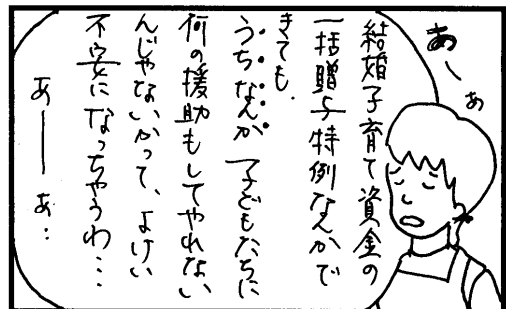 あ〜ぁ
結婚子育て資金の
一括贈与特例なんかで
きても、
うちなんか子どもたちに
何の援助もしてやれない
んじゃないかって、よけい
不安になっちゃうわ…
あ――ぁ…